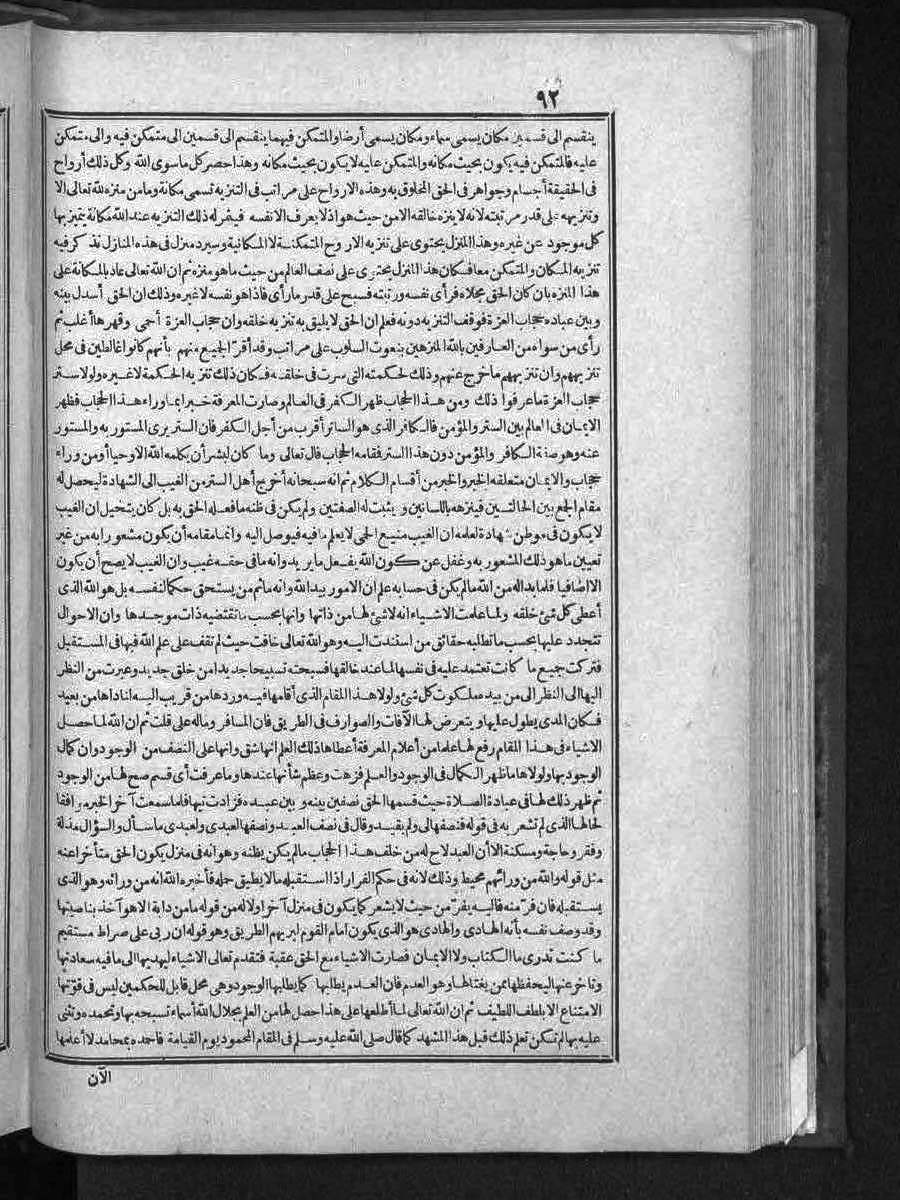 ٩٢
ينقسم الى قسمين مكان يسمى سماء ومكان يسمى أرضا والمتمكن فيهما ينقسم الى قسمين الى متمكن فيه والى متمكن
عليه فالمتمكن فيه يكون بحيث مكانه والمتمكن عليه لا يكون بحيث مكانه وهذا حصر كل ما سوى الله وكل ذلك أرواح
فى الحقيقة أجسام وجواهر فى الحق المخلوق به وهذه الارواح على مراتب فى التنزيه تسمى مكانة وما من منزه لله تعالى الا
وتنزيهه على قدر مرتبته لانه لا ينزه خالقه الا من حيث هو اذ لا يعرف الا نفسه فيثمر له ذلك التنزيه عند الله مكانة يتميز بها
كل موجود عن غيره وهذا المنزل يحتوى على تنزيه الارواح المتمكنة لا المكانية وسيرد منزل فى هذه المنازل نذكر فيه
تنزيه المكان والمتمكن معا فكان هذا المنزل يحتوى على نصف العالم من حيث ما هو منزه ثم ان الله تعالى عاد بالمكانة على
هذا المنزه بان كان الحق مجلاه فرأى نفسه ورتبته فسبح على قدر ما رأى فاذا هو نفسه لا غيره وذلك ان الحق أسدل بينه
وبين عباده حجاب العزة فوقف التنزيه دونه فعلم ان الحق لا يليق به تنزيه خلقه وان حجاب العزة أحمى وقهرها أغلب ثم
رأى من سواه من العارفين بالله المنزهين بنعوت السلوب على مراتب وقد أقر الجميع منهم بأنهم كانوا غالطين فى محل
تنزيههم وان تنزيههم ما خرج عنهم وذلك لحكمته التى سرت فى خلقه فكان ذلك تنزيه الحكمة لا غيره ولولا ستر
حجاب العزة ما عرفوا ذلك ومن هذا الحجاب ظهر الكفر فى العالم وصارت المعرفة خبرا بما وراء هذا الحجاب فظهر
الايمان فى العالم بين الستر والمؤمن فالكافر الذى هو الساتر أقرب من أجل الكفر فان الستر يرى المستور به والمستور
عنه وهو صفة الكافر والمؤمن دون هذا الستر فقامه الحجاب قال تعالى وما كان لبشر أن يكلمه الله الا وحيا أو من وراء
حجاب والايمان متعلقه الخبر والخبر من أقسام الكلام ثم انه سبحانه أخرج أهل الستر من الغيب الى الشهادة ليحصل له
مقام الجمع بين الحالتين فينزهه باللسانين ويثبت له الصفتين ولم يكن فى ظنه ما فعله الحق به بل كان يتخيل ان الغيب
لا يكون فى موطن شهادة لعلمه ان الغيب منيع الحمى لا يعلم ما فيه فيوصل اليه وانما مقامه أن يكون مشعورا به من غير
تعيين ما هو ذلك المشعور به وغفل عن كون الله يفعل ما يريد وانه ما فى حقه غيب وان الغيب لا يصح أن يكون
الا اضافيا فلما بداله من الله ما لم يكن فى حسابه علم ان الامور بيد الله وانه ما ثم من يستحق حكما لنفسه بل هو الله الذى
أعطى كل شئ خلقه ولما علمت الاشياء انه لا شئ لها من ذاتها وانها بحسب ما تقتضيه ذات موجدها وان الاحوال
تتجدد عليها بحسب ما تطلبه حقائق من استندت اليه وهو الله تعالى خافت حيث لم تقف على علم الله فيها فى المستقبل
فتركت جميع ما كانت تعتمد عليه فى نفسها لما عند خالقها فسبحته تسبيحا جديدا من خلق جديد وعبرت من النظر
اليها الى النظر الى من بيده ملكوت كل شئ ولولا هذا المقام الذى أقامها فيه وردها من قريب اليه اناداها من بعيد
فكان المدى يطول عليها ويتعرض لها الآفات والصوارف فى الطريق فان المسافر وماله على قلت ثم ان الله لما حصل
الاشياء فى هذا المقام رفع لها علما من أعلام المعرفة أعطاها ذلك العلم انها شق وانها على النصف من الوجود وان كمال
الوجود بها ولولاها ما ظهر الكمال فى الوجود والعلم فزهت وعظم شأنها عندها وما عرفت أى قسم صح لها من الوجود
ثم ظهر ذلك لها فى عبادة الصلاة حيث قسمها الحق نصفين بينه وبين عبده فزادت تيها فلما سمعت آخر الخبر موافقا
لحالها الذى لم تشعر به فى قوله فنصفها لى ولم يقيد وقال فى نصف العبد ونصفها لعبدى ولعبدى ما سأل والسؤال مذلة
وفقر وحاجة ومسكنة الا أن العبد لاح له من خلف هذا الحجاب ما لم يكن يظنه وهو انه فى منزل يكون الحق متأخرا عنه
مثل قوله والله من ورائهم محيط وذلك لانه فى حكم الفرار اذا استقبله ما لا يطيق حمله فأخبره الله انه من ورائه وهو الذى
يستقبله فان فر منه فاليه يفر من حيث لا يشعر كما يكون فى منزل آخر اولا له من قوله ما من دابة الا هو آخذ بناصيتها
وقد وصف نفسه بأنه الهادى والهادى هو الذى يكون امام القوم ليريهم الطريق وهو قوله ان ربى على صراط مستقيم
ما كنت تدرى ما الكتاب ولا الايمان فصارت الاشياء مع الحق عقبة فتقدم تعالى الاشياء ليهديها الى ما فيه سعادتها
وتأخر عنها ليحفظها ممن يغتالها وهو العدم فان العدم يطلبها كما يطلبها الوجود وهى محل قابل للحكمين ليس فى قوتها
الامتناع الا بلطف اللطيف ثم ان الله تعالى لما أطلعها على هذا حصل لها من العلم بجلال الله أسماء تسبحه بها وتحمده وتثنى
عليه بها لم تكن تعلم ذلك قبل هذا المشهد كما قال صلى الله عليه وسلم فى المقام المحمود يوم القيامة فأحمده بمحامد لا أعلمها
الآن